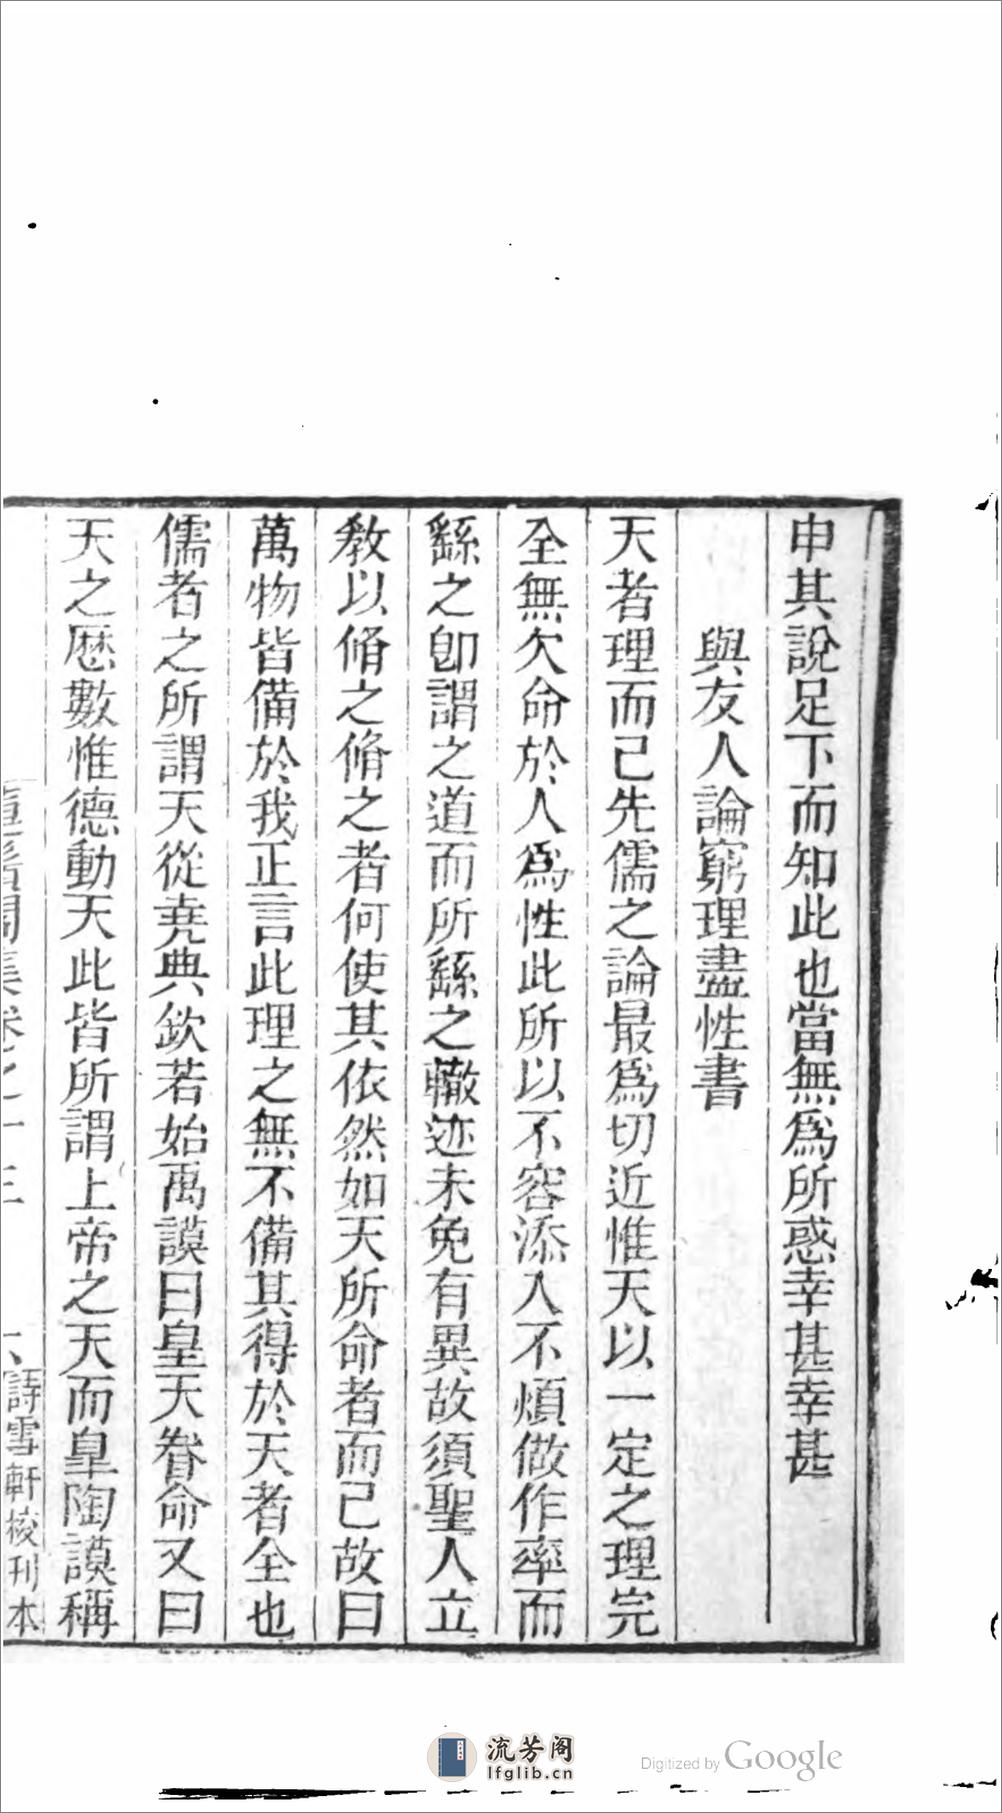 申其說足下而知此也當無爲所惑幸甚幸甚
與友人論窮理盡性書
天者理而已先儒之論最爲切近惟天以一定之理完
全無欠命於人爲性此所以不容添入不煩做作率而
繇之卽謂之道而所繇之轍迹未免有異故須聖人立
教以脩之脩之者何使其依然如天所命者而已故曰
萬物皆備於我正言此理之無不備其得於天者全也
儒者之所謂天從堯典欽若始禹謨曰皇天眷命又曰
天之厯數惟德動天此皆所謂上帝之天而臯陶謨稱
集卷之十三
詩雪軒校刊本
流芳阁
lfglib.cn
Digitized by Google